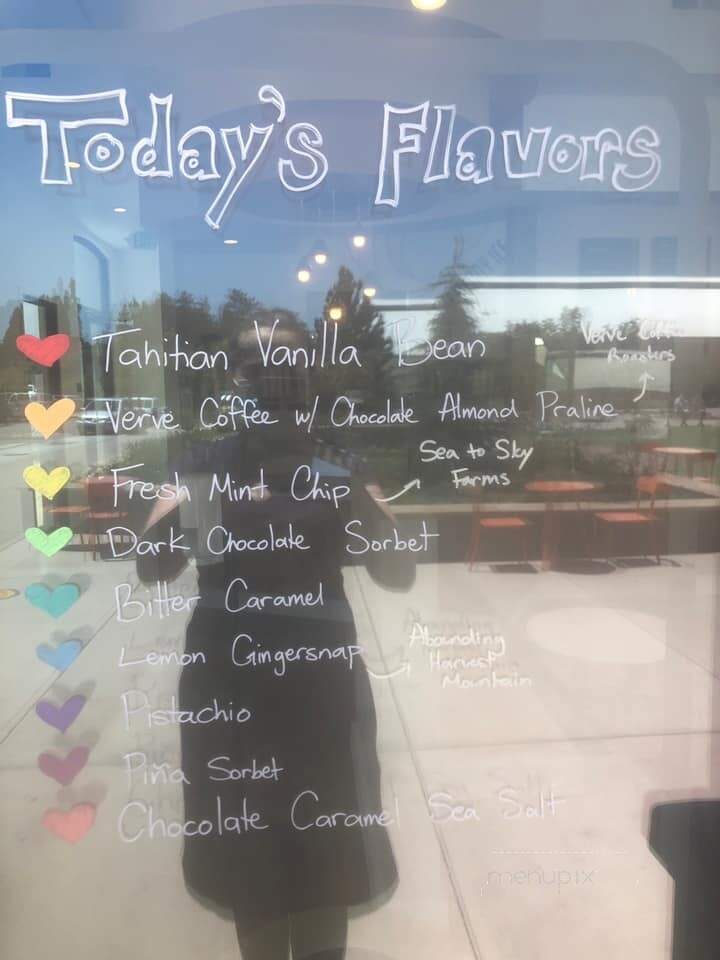 Today's Flavors
Tahitian Vanilla Bean
Verve Coffee
Roasters
Verve Coffee w/ Chocolate Almond Praline
Sea to Sky
Farms
Fresh Mint Chip
Dark Chocolate Sorbet
Bitter Caramel
Lemon Gingersnap
Abounding
Harvest
Mountain
Pistachio
Piña Sorbet
Chocolate Caramel Sea Salt
menupix